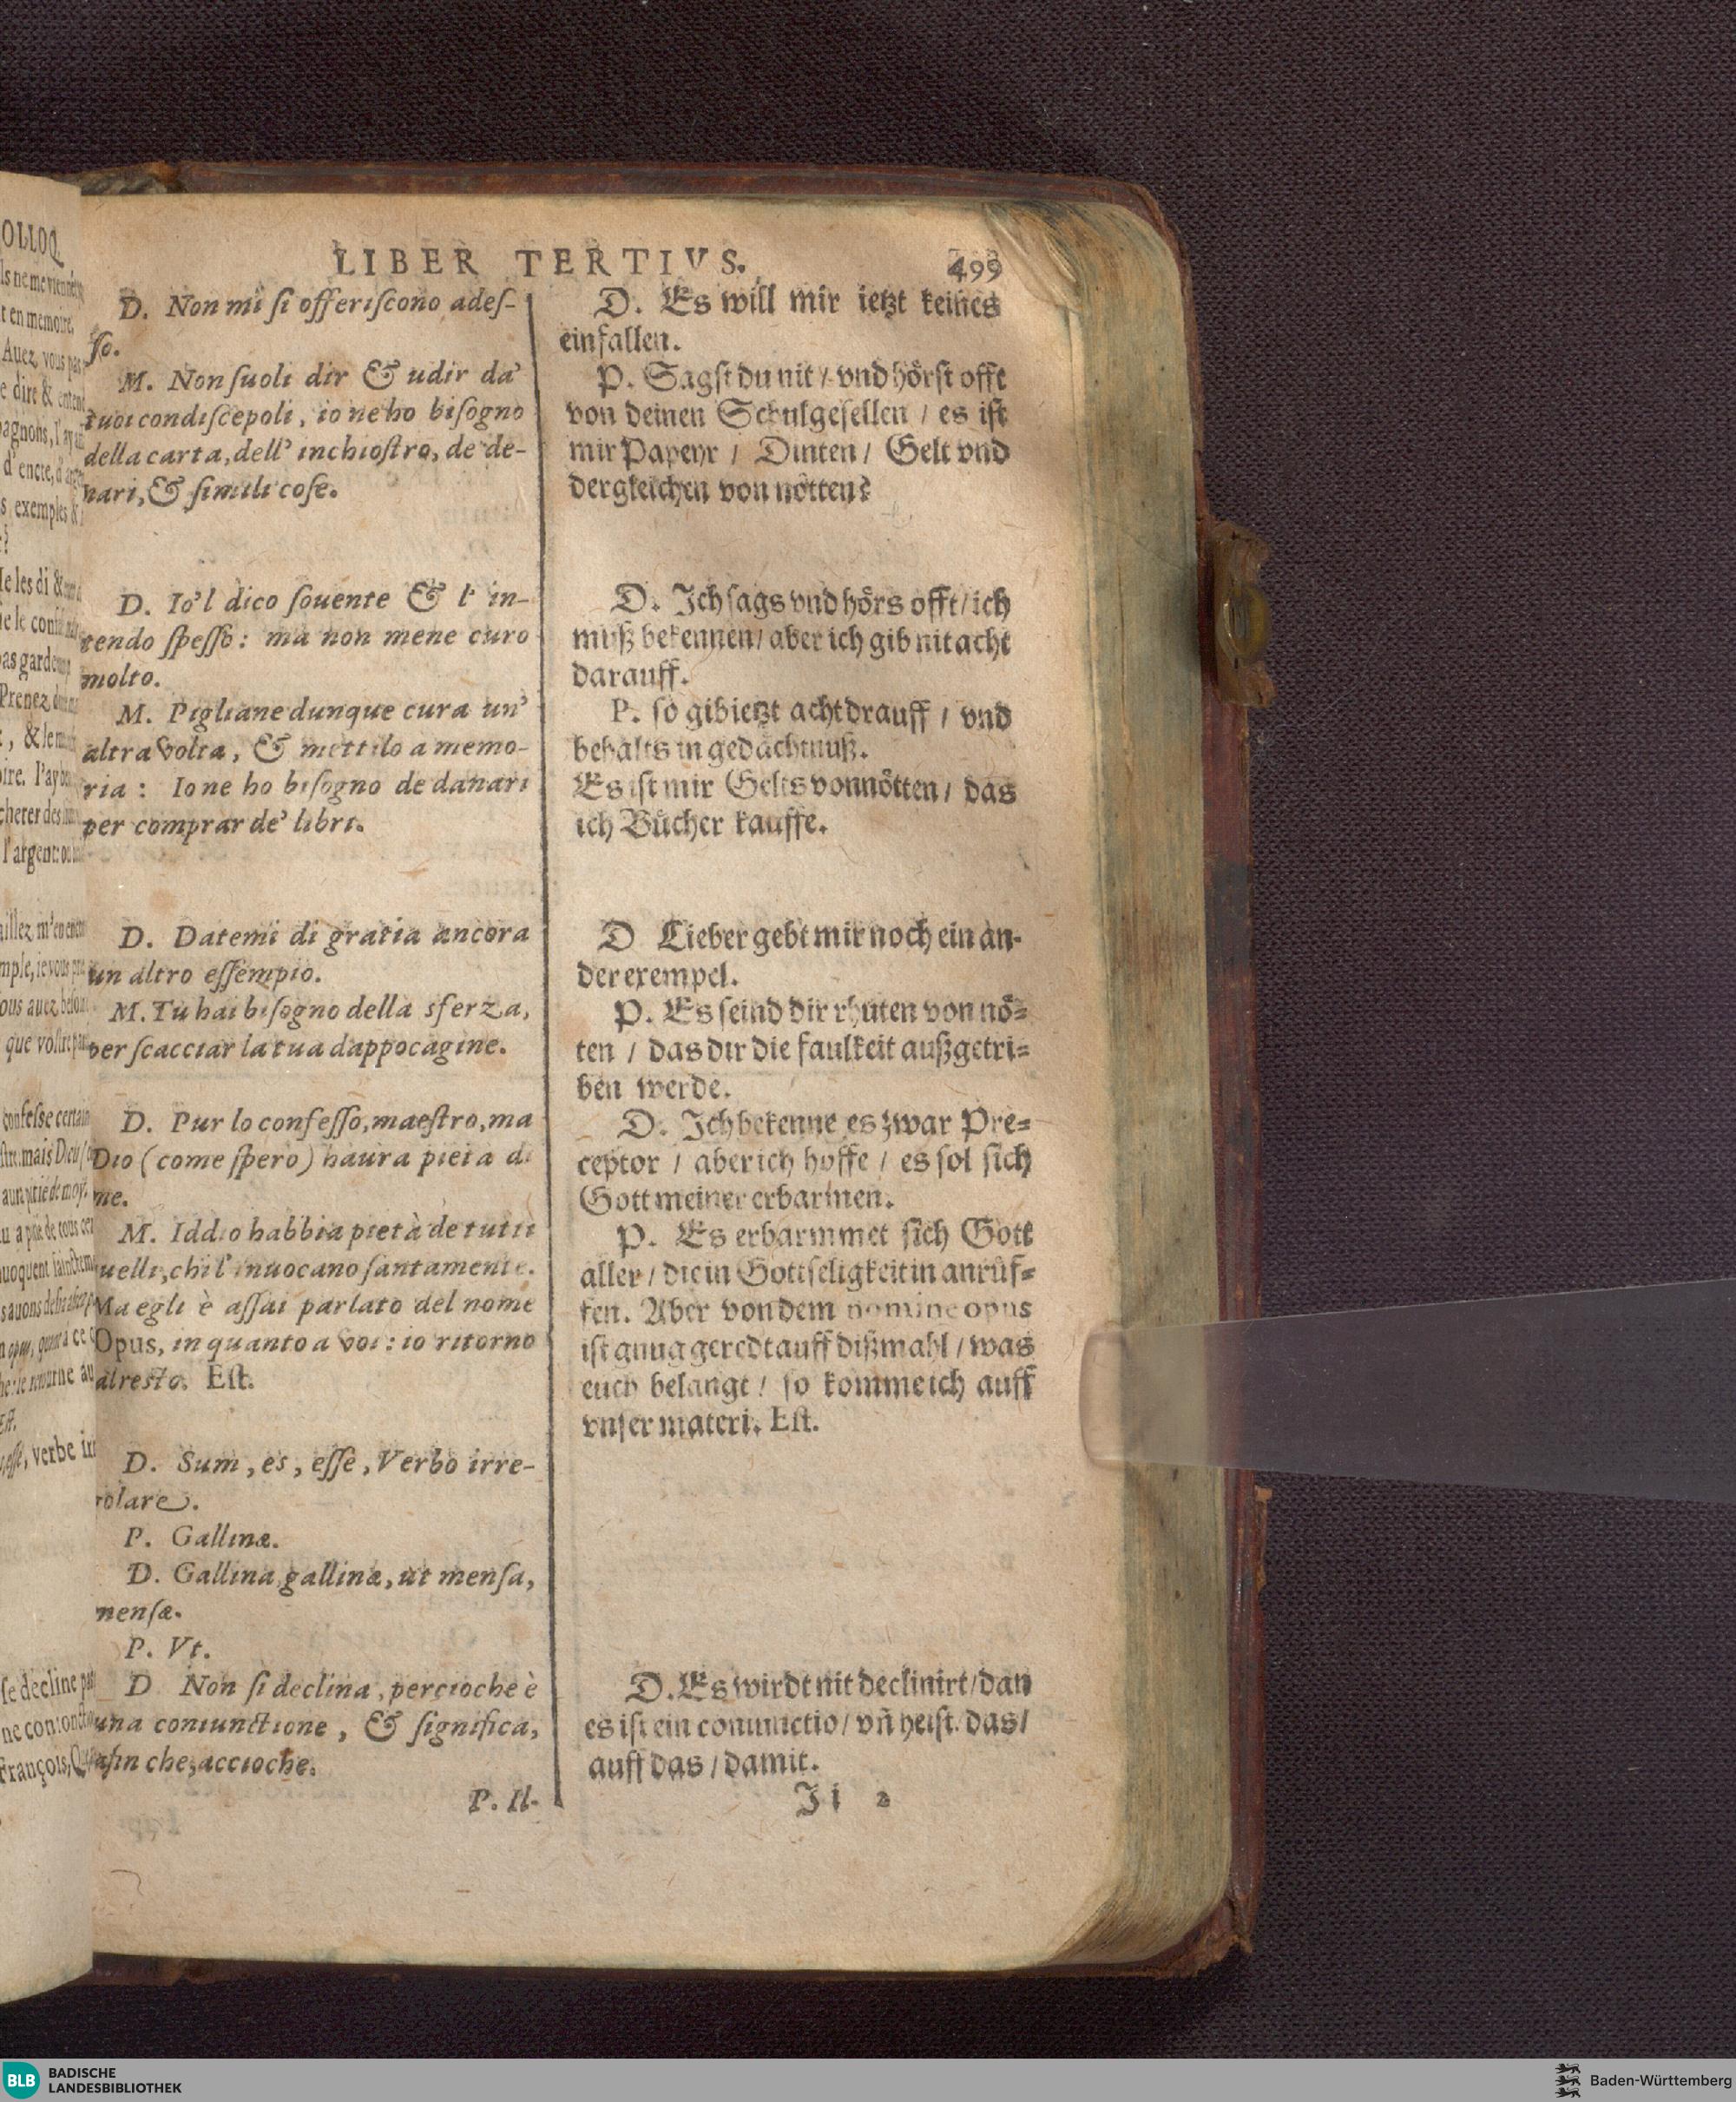 LIBER TERTIVS. 499
D. Non mi ſi offeriſcono adeſ-
ſo.
M. Non ſuoli dir & udir da'
tuoi condiſcepoli, io ne ho biſogno
della carta, dell' inchioſtro, de de-
nari, & ſimili coſe.
D. Io'l dico ſouente & l' in-
tendo ſpeſſo: ma non mene curo
molto.
M. Pigliane dunque cura un'
altra volta, & mettilo a memo-
ria: Io ne ho biſogno de danari
per comprar de' libri.
D. Datemi di gratia ancora
un altro eſſempio.
M. Tu hai biſogno della sferza,
per ſcacciar la tua dappocagine.
D. Pur lo confeſſo, maeſtro, ma
Dio (come ſpero) haura pieta di
me.
M. Iddio habbia pietà de tutti
quelli, chi l' inuocano ſantamente.
Ma egli è aſſai parlato del nome
Opus, in quanto a voi: io ritorno
al reſto. Eſt.
D. Sum, es, eſſe, Verbo irre-
golare.
P. Gallinæ.
D. Gallina gallinæ, ut menſa,
menſæ.
P. Vt.
D Non ſi declina, percioche è
una coniunctione, & ſignifica,
afin che, accioche.
P. Il-
D. Es will mir ietzt keines
einfallen.
P. Sagſt du nit / vnd hörſt offt
von deinen Schulgeſellen / es iſt
mir Papeyr / Dinten / Gelt vnd
dergleichen von nötten?
D. Ich ſags vnd hörs offt / ich
muß bekennen / aber ich gib nit acht
darauff.
P. ſo gib ietzt acht drauff / vnd
behalts in gedächtnuß.
Es iſt mir Gelts vonnötten / das
ich Bücher kauffe.
D Lieber gebt mir noch ein an-
der exempel.
P. Es ſeind dir rhuten von nö-
ten / das dir die faulkeit außgetri-
ben werde.
D. Ich bekenne es zwar Pre-
ceptor / aber ich hoffe / es ſol ſich
Gott meiner erbarmen.
P. Es erbarmmet ſich Gott
aller / die in Gottſeligkeit in anrüf-
fen. Aber von dem nomine opus
iſt gnug geredt auff dißmahl / was
euch belangt / ſo komme ich auff
vnſer materi. Eſt.
D. Es wirdt nit declinirt / dan
es iſt ein coniunctio / vñ heiſt. das /
auff das / damit.
Ji 2
BLB BADISCHE
LANDESBIBLIOTHEK
Baden-Württemberg